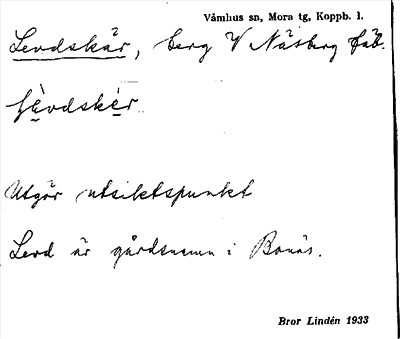 Våmhus sn, Mora tg, Koppb. l.
Levdskär, berg V Näsberg fäb.
Utgör utsiktspunkt
Levd är gårdsnamn i Bonäs.
Bror Lindén 1933